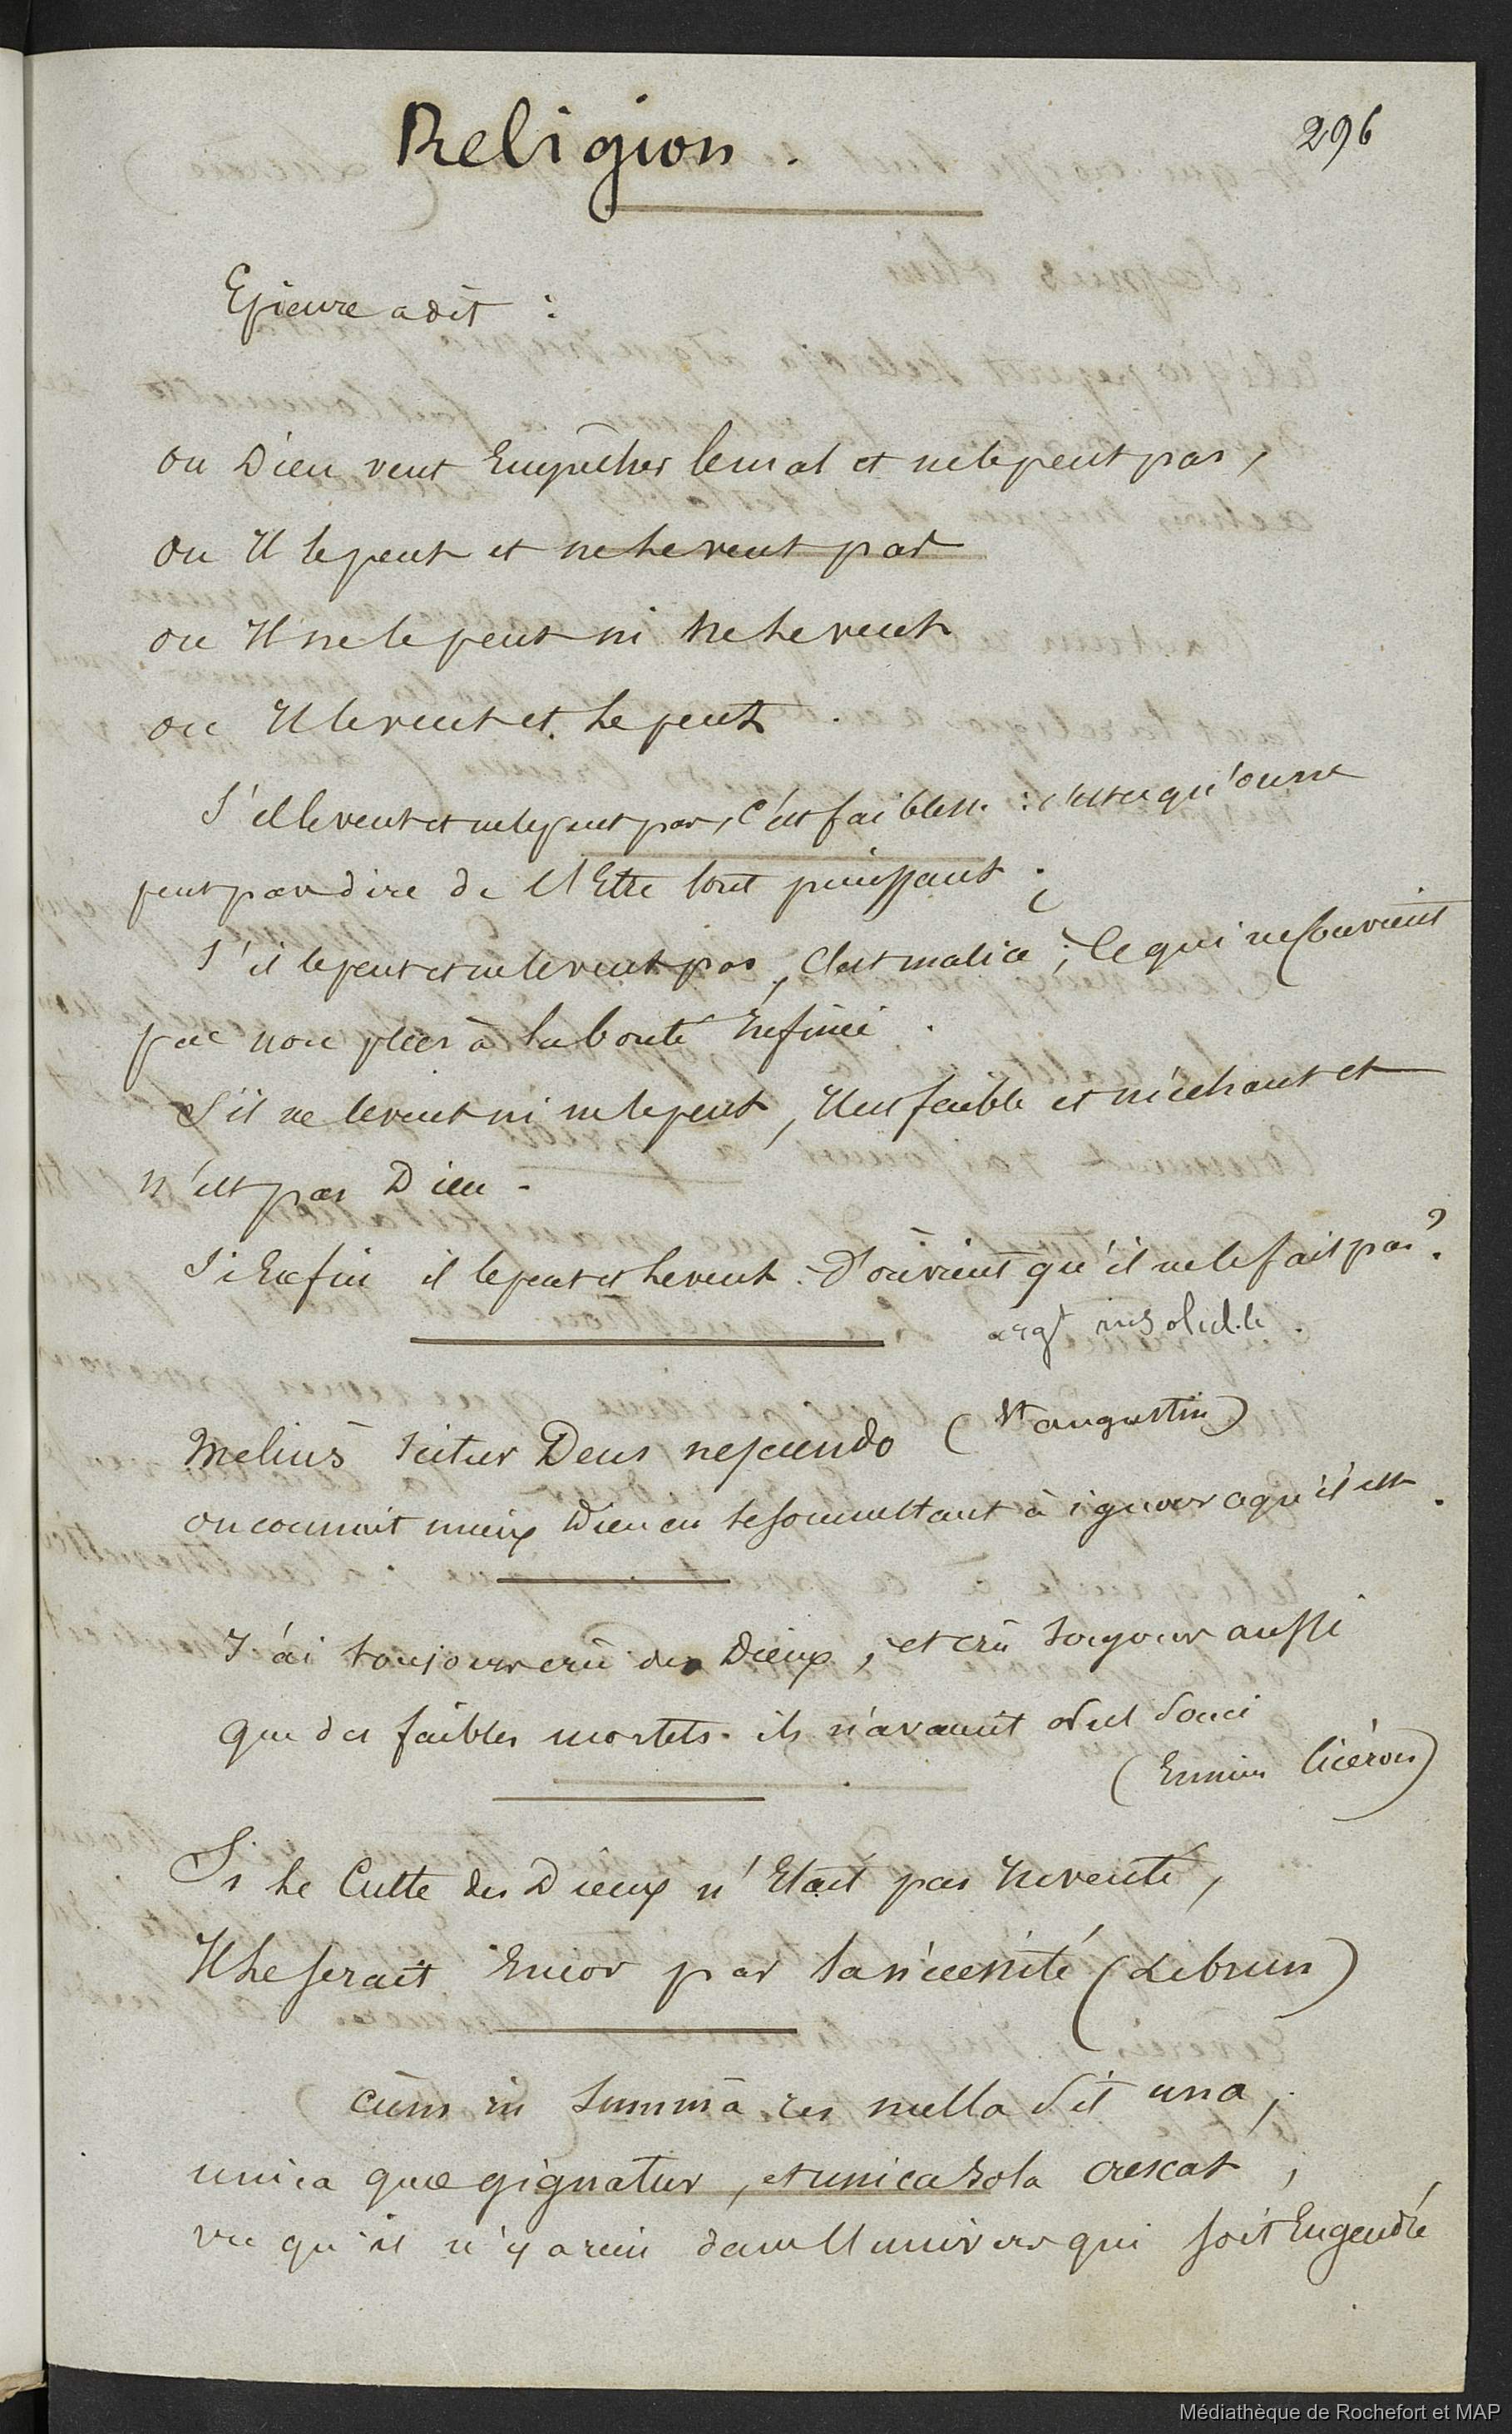 Religion.
296
Epicure a dit :
ou Dieu veut Empêcher le mal et ne le peut pas,
ou Il le peut et ne le veut pas
ou Il ne le peut ni ne le veut
ou Il le veut et le peut.
S'il le veut et ne le peut pas, c'est faiblesse : c'est ce qu'on ne
peut pas dire de l'Etre tout puissant ;
S'il le peut et ne le veut pas, c'est malice ; ce qui ne convient
pas non plus à la bonté Infinie.
S'il ne le veut ni ne le peut, Il est faible et méchant et
n'est pas Dieu.
Si Enfin il le peut et le veut : D'où vient qu'il ne le fait pas ?
argt insoluble.
Melius scitur Deus nesciendo (St augustin)
on connait mieux Dieu en se soumettant à ignorer ce qu'il est.
J'ai toujours crû des Dieux, et crû toujours aussi
que des faibles mortels ils n'avaient nul souci
(Ennius Cicéron)
Si le Culte des Dieux n'Etait pas Inventé,
Il le serait Encor par la nécessité (Lebrun)
cùm in summâ res nulla sit una,
unica quae gignatur, et unica sola crescat,
vu qu'il n'y a rien dans l'univers qui soit Engendré
Médiathèque de Rochefort et MAP